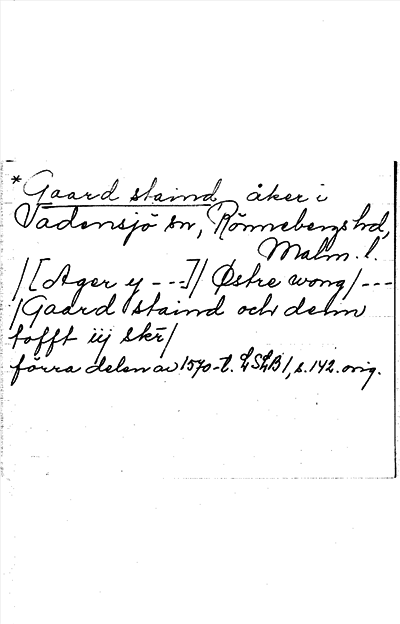 *Gaard staind, åker i
Vadensjö sn, Rönnebergs hd,
Malm. l.
/[Ager y ---]/ Østre wong/---
/Gaard staind och denn
tofft iij skr/
förra delen av 1570-t. LSLB 1, s. 142. orig.